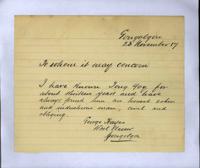 Gongolgon
23 November 17
To whom it may concern
I have known Tong Goy for
about thirteen years and have
always found him an honest sober
and industrious man, civil and
obliging.
George
Gongolgon